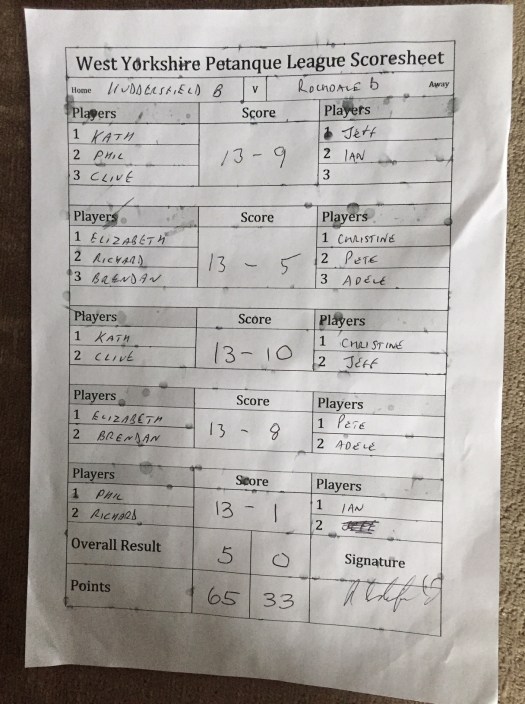 West Yorkshire Petanque League Scoresheet
Home HUDDERSFIELD B v ROCHDALE b Away
Players Score Players
1 KATH 1 Jeff
2 PHIL 13 - 9 2 IAN
3 CLIVE 3
Players Score Players
1 ELIZABETH 1 CHRISTINE
2 RICHARD 13 - 5 2 PETE
3 BRENDAN 3 ADELE
Players Score Players
1 KATH 1 CHRISTINE
2 CLIVE 13 - 10 2 JEFF
Players Score Players
1 ELIZABETH 1 PETE
2 BRENDAN 13 - 8 2 ADELE
Players Score Players
1 PHIL 13 - 1 1 IAN
2 RICHARD 2
Overall Result 5 0 Signature
Points 65 33